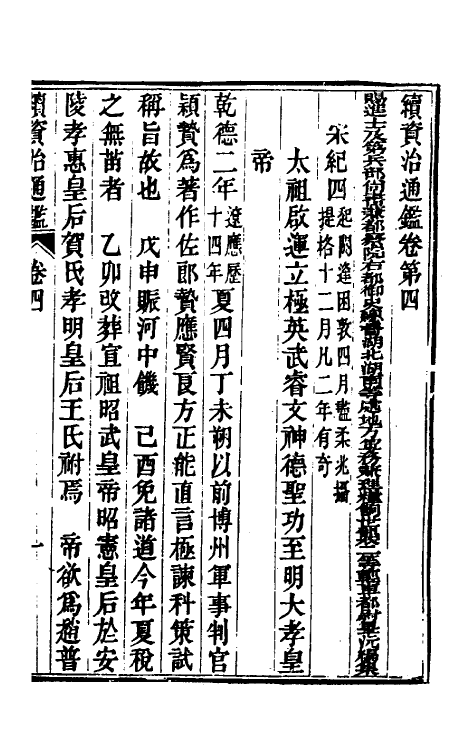 續資治通鑑卷第四
賜進士及第兵部尚書兼都察院右都御史總督湖北湖南等處地方軍務兼理糧餉世襲二等輕車都尉畢沅編集
宋紀四起閼逢困敦四月盡柔兆攝
提格十二月凡二年有奇
太祖啟運立極英武睿文神德聖功至明大孝皇
帝
乾德二年遼應歷
十四年夏四月丁未朔以前博州軍事判官
穎贄爲著作佐郎贄應賢良方正能直言極諫科策試
稱旨故也　戊申賑河中饑　己酉免諸道今年夏稅
之無苗者　乙卯改葬宣祖昭武皇帝昭憲皇后於安
陵孝惠皇后賀氏孝明皇后王氏祔焉　帝欲爲趙普
續資治通鑑　卷四　一